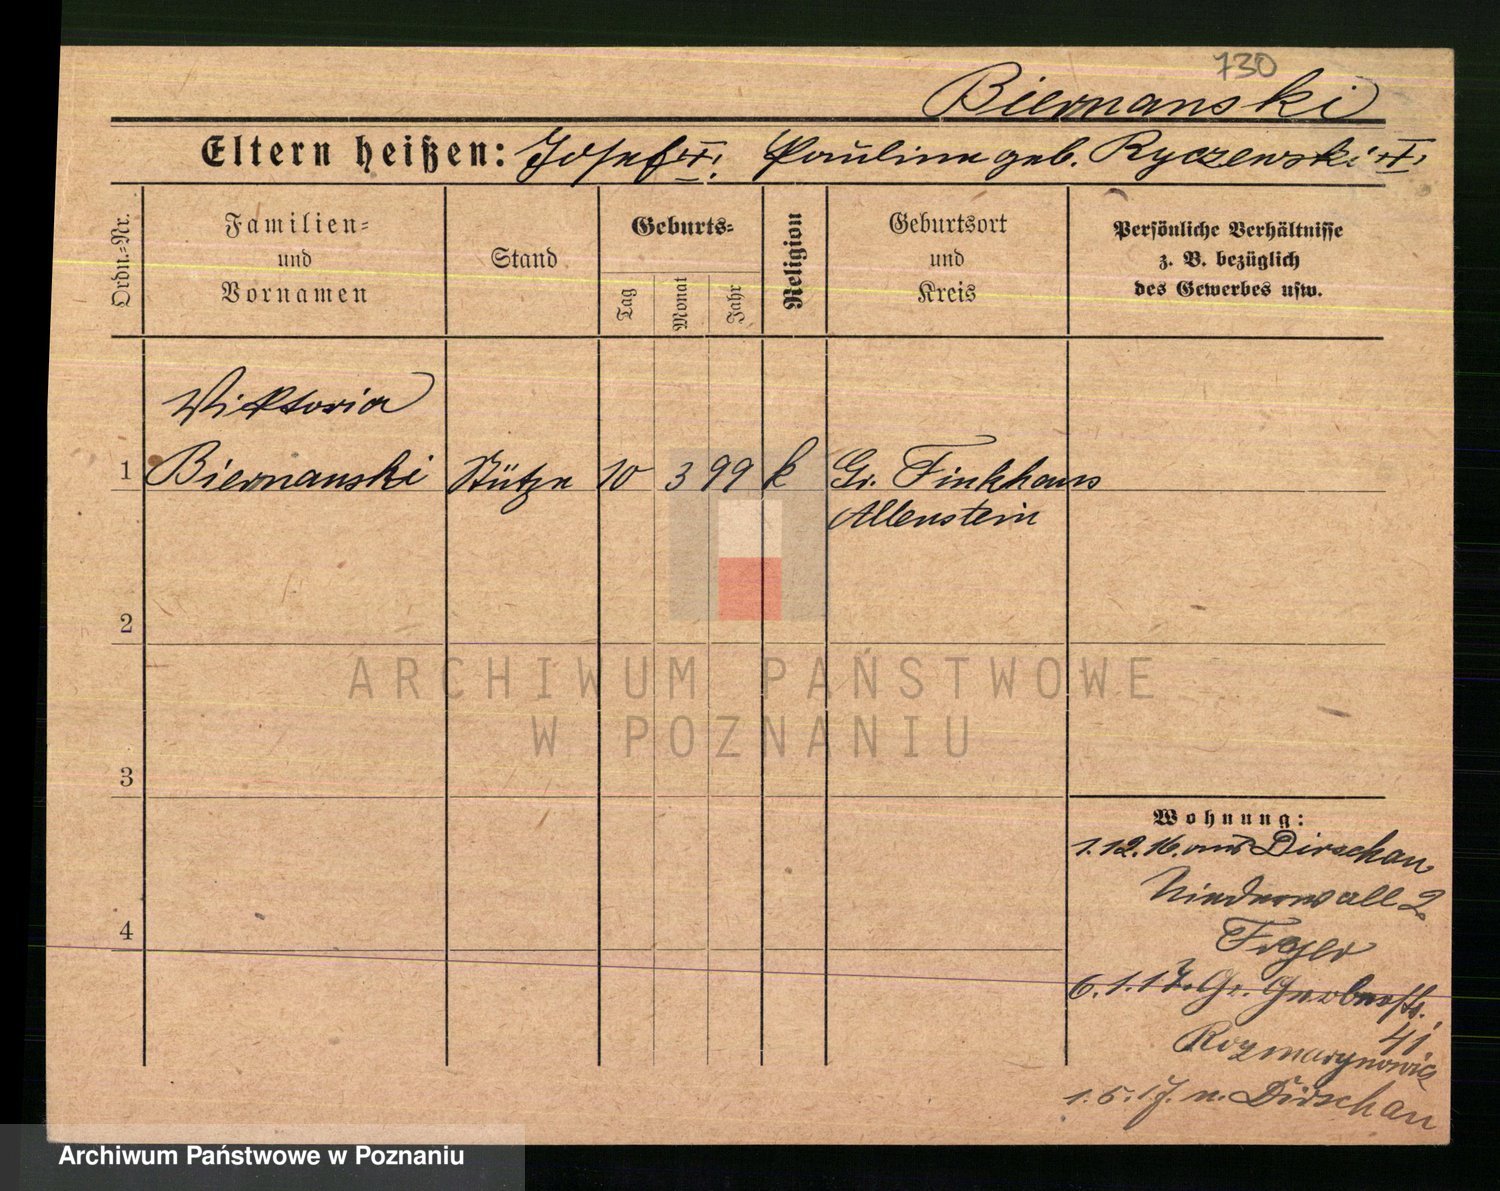 730
Biernanski
Eltern heißen: Josef Pauline geb. Ryczewski
Ordn.=Nr.
Familien=
und
Vornamen
Stand
Geburts=
Tag
Monat
Jahr
Religion
Geburtsort
und
Kreis
Persönliche Verhältnisse
z. B. bezüglich
des Gewerbes usw.
Viktoria
1 Biernanski Stütze 10 3 99 k Gr. Finkhaus
Allenstein
2
ARCHIWUM PAŃSTWOWE
W POZNANIU
3
Wohnung:
1.12.16. aus Dirschau
Niederwall 2
4
6.1.17. Gr. Gerberstr.
41
Rozmarynowicz
1.5.17. n. Dirschau
Archiwum Państwowe w Poznaniu